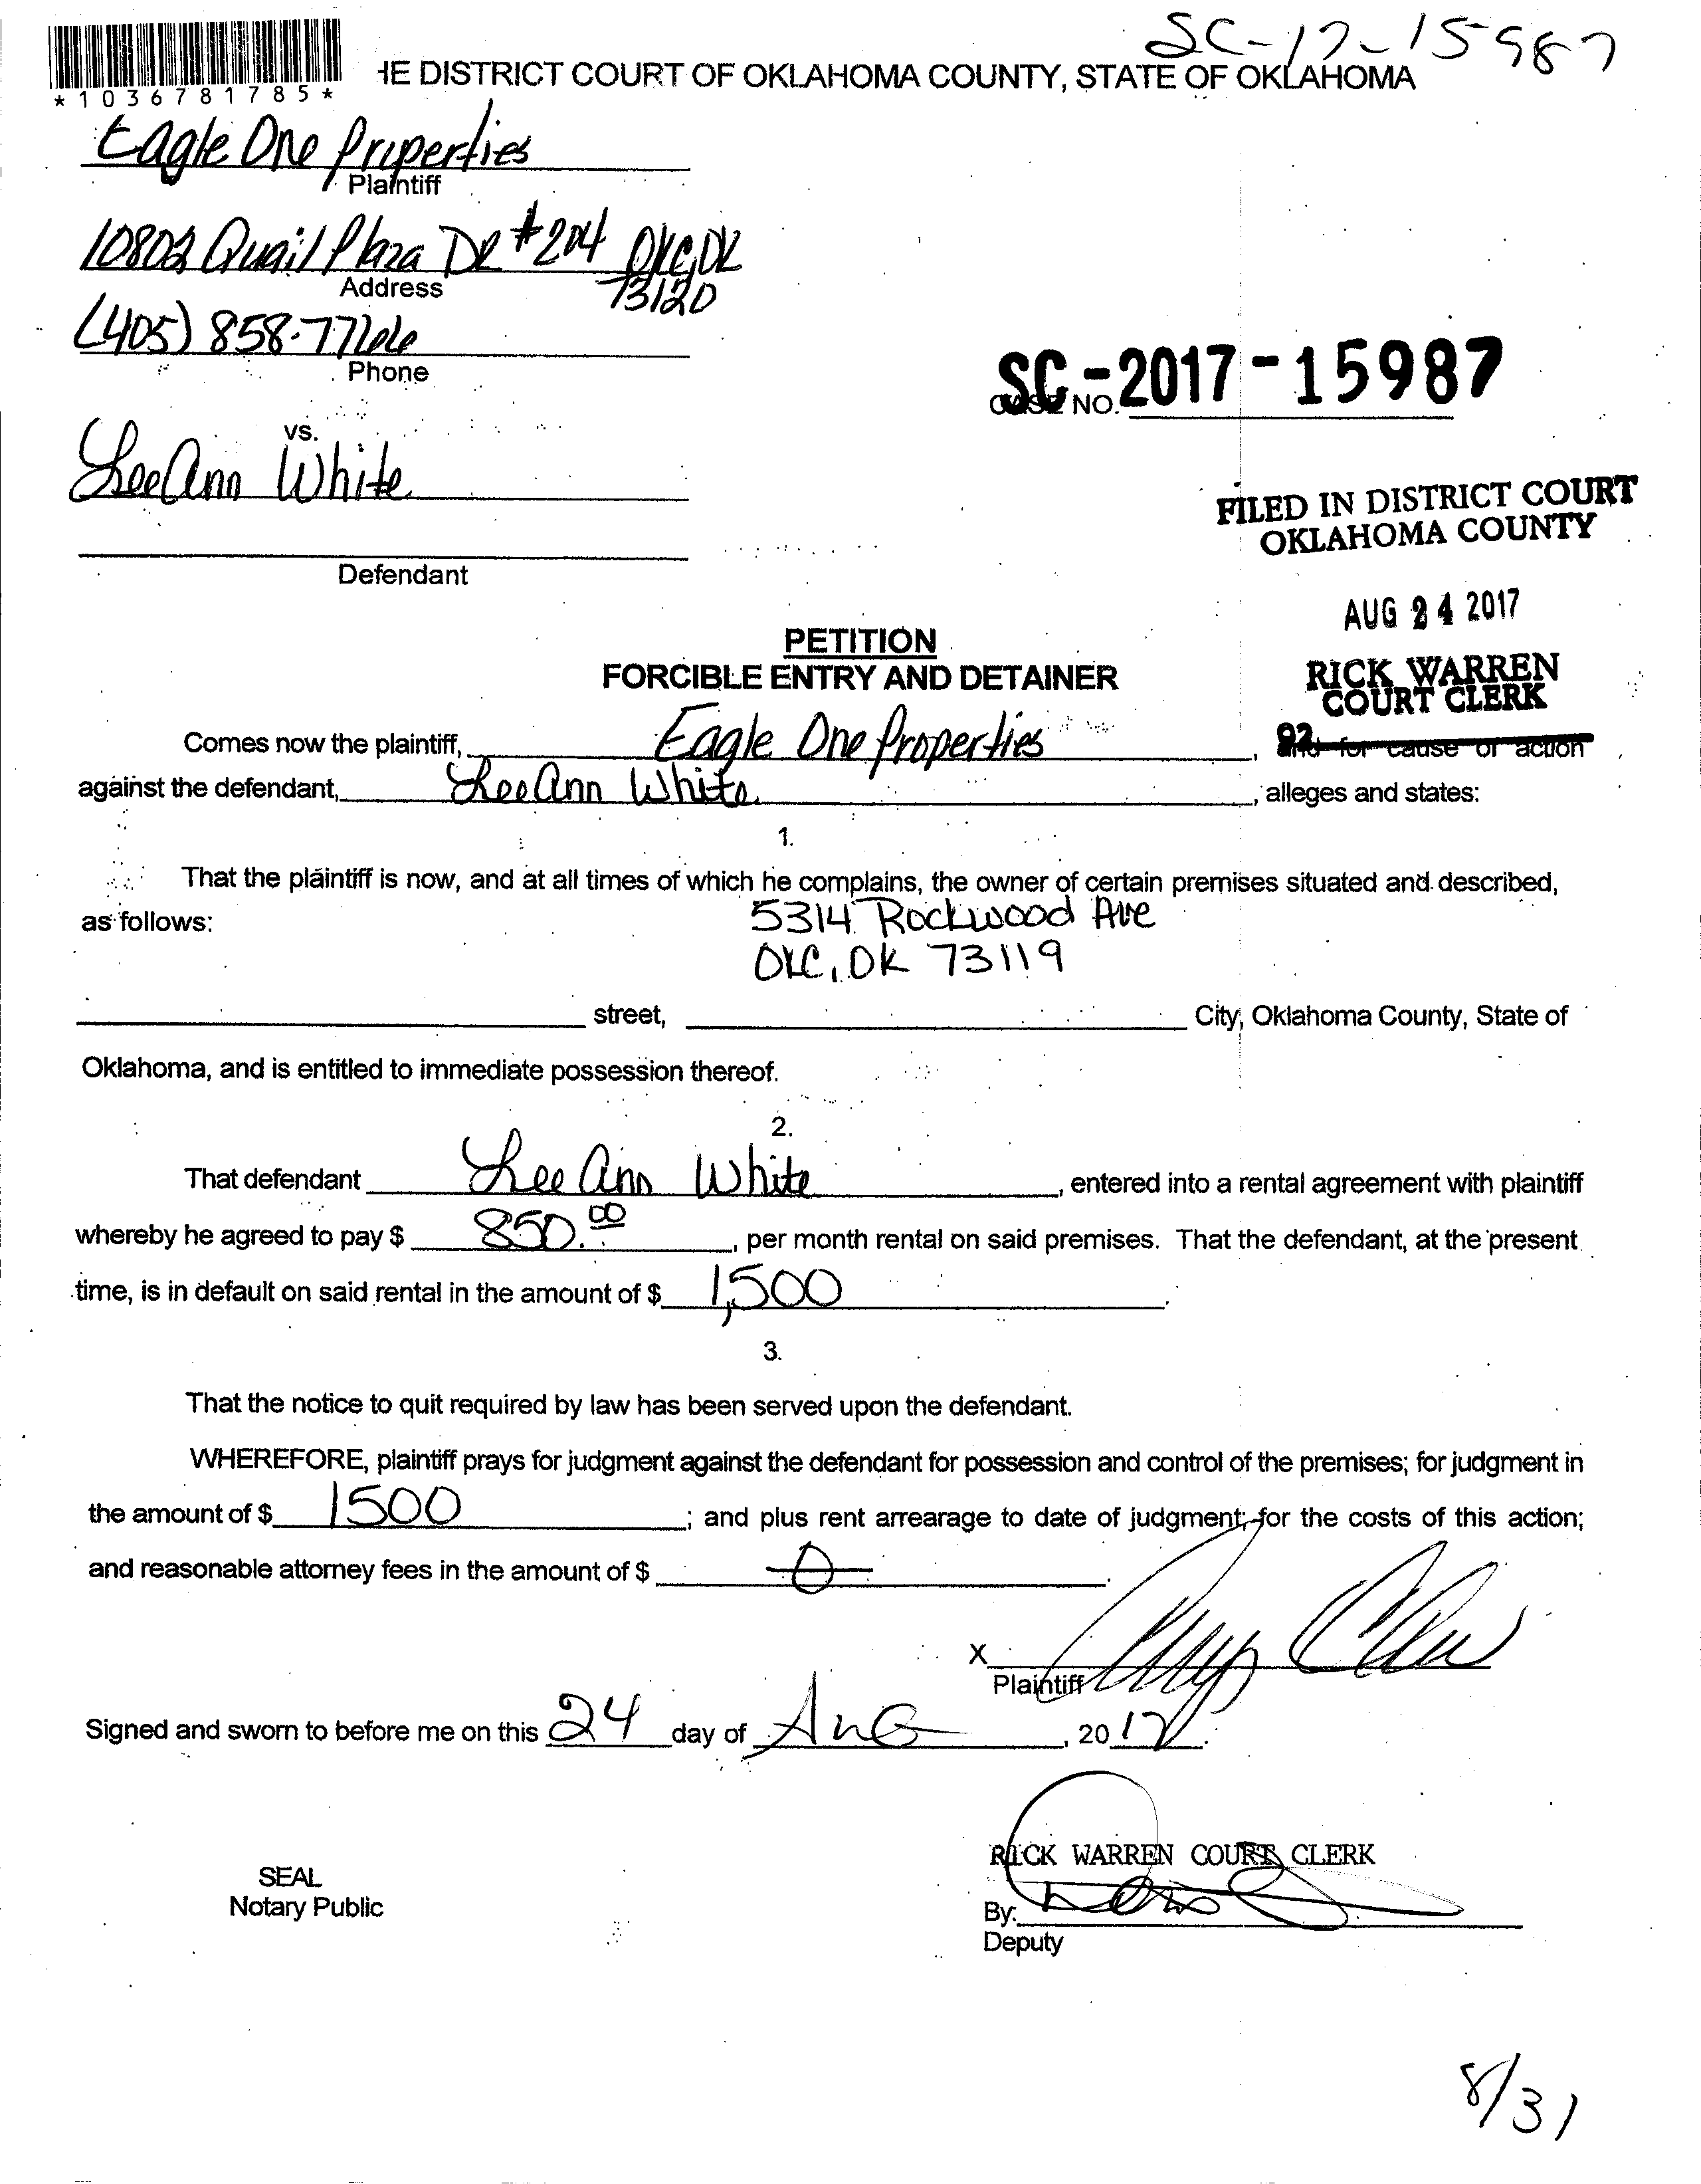 SC-17-15987
*1036781785*
HE DISTRICT COURT OF OKLAHOMA COUNTY, STATE OF OKLAHOMA
Eagle One Properties
Plaintiff
10802 Quail Plaza DR #204 OKC, OK
73120
Address
(405) 858-7766
Phone
SC-2017-15987
CASE NO.
vs.
LeeAnn White
FILED IN DISTRICT COURT
OKLAHOMA COUNTY
Defendant
AUG 24 2017
PETITION
FORCIBLE ENTRY AND DETAINER
RICK WARREN
COURT CLERK
92
Comes now the plaintiff, Eagle One Properties, and for cause of action
against the defendant, LeeAnn White, alleges and states:
1.
That the plaintiff is now, and at all times of which he complains, the owner of certain premises situated and described,
as follows: 5314 Rockwood Ave
OKC, OK 73119
street, City, Oklahoma County, State of
Oklahoma, and is entitled to immediate possession thereof.
2.
That defendant Lee Ann White, entered into a rental agreement with plaintiff
whereby he agreed to pay $ 850.00, per month rental on said premises. That the defendant, at the present
time, is in default on said rental in the amount of $ 1,500.
3.
That the notice to quit required by law has been served upon the defendant.
WHEREFORE, plaintiff prays for judgment against the defendant for possession and control of the premises; for judgment in
the amount of $ 1500; and plus rent arrearage to date of judgment; for the costs of this action;
and reasonable attorney fees in the amount of $ 0.
X
Plaintiff
Signed and sworn to before me on this 24 day of Aug, 2017.
RICK WARREN COURT CLERK
SEAL
Notary Public
By:
Deputy
8/31